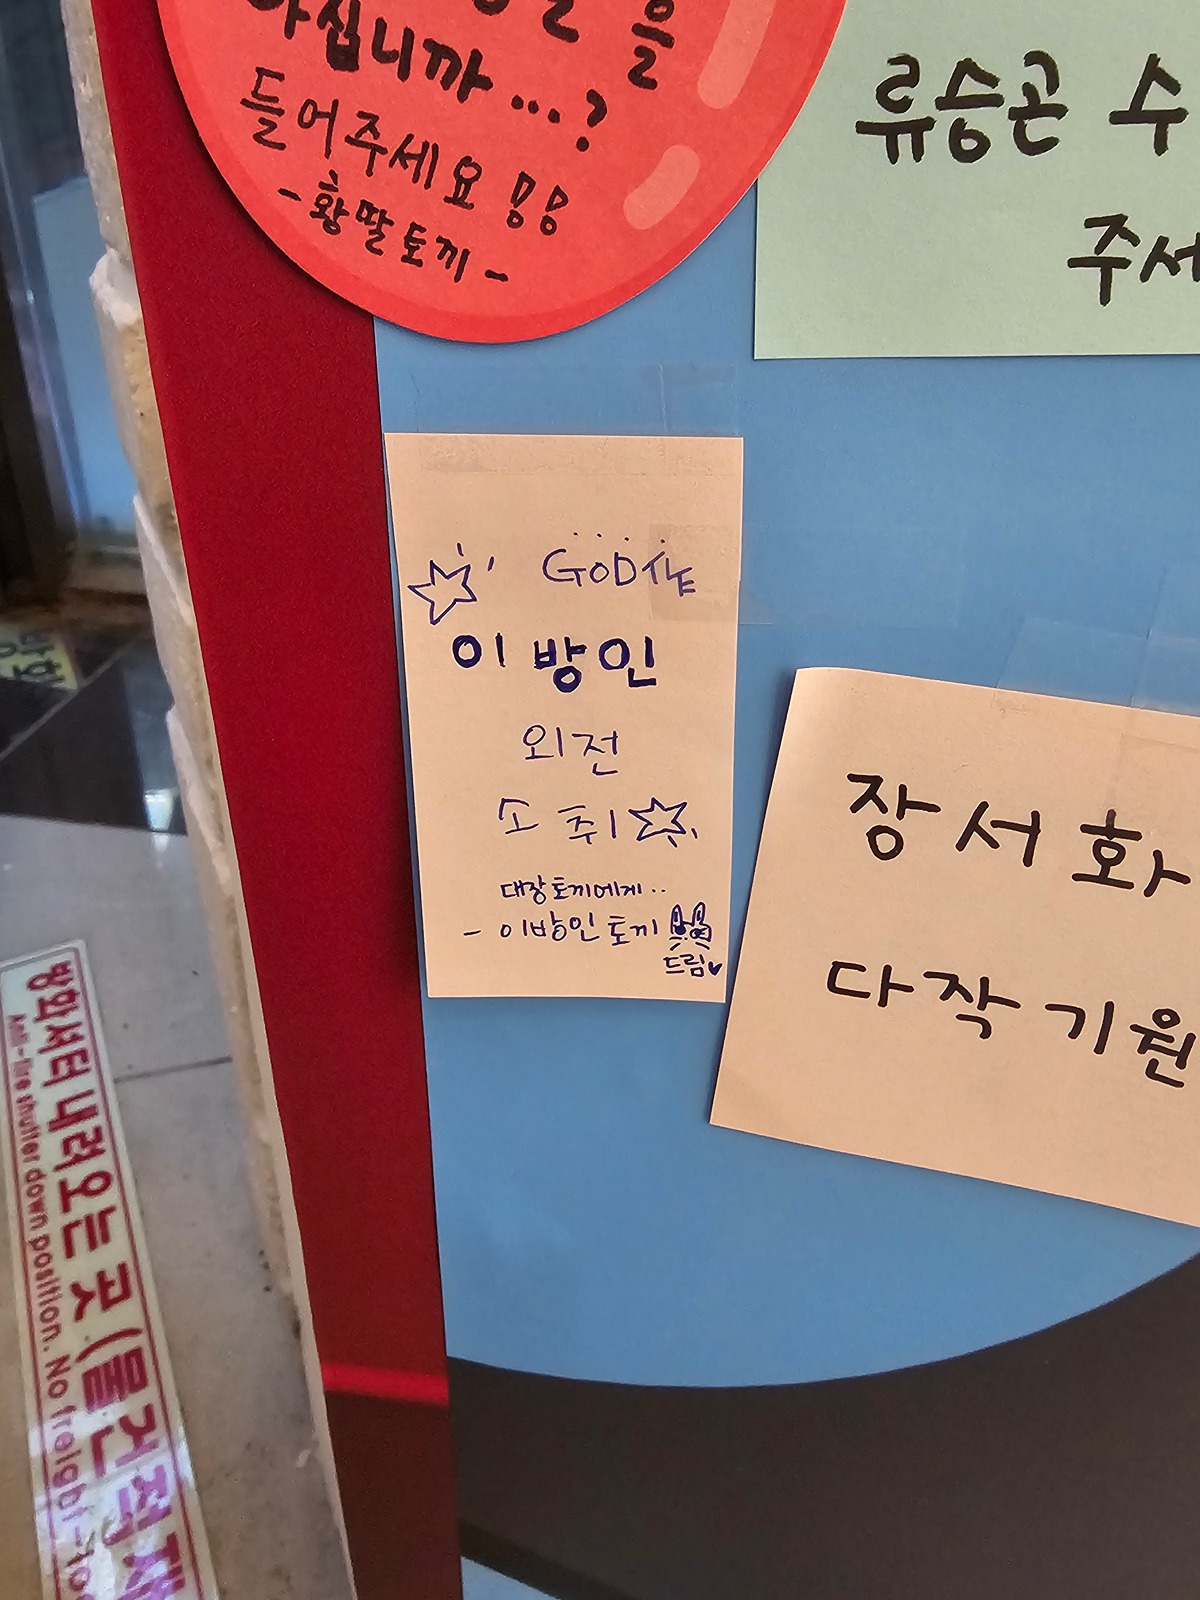 을
아십니까...?
들어주세요 ㅠㅠ
-황딸토끼-
류승곤 수
주세
GOD作
이방인
외전
소취
대장토끼에게..
- 이방인토끼
드림♥
장서화
다작기원
방화셔터 내려오는 곳 (물건적재
Anti-fire shutter down position. No freight-lo